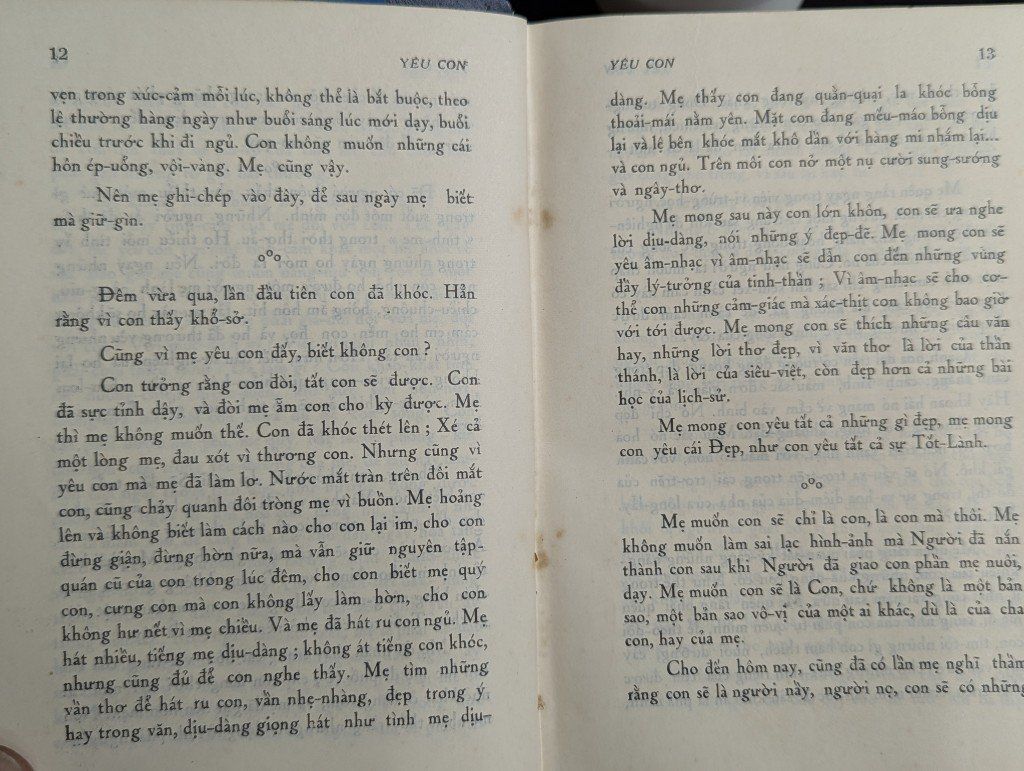 12
YÊU CON
vẹn trong xúc-cảm mỗi lúc, không thể là bắt buộc, theo
lệ thường hàng ngày như buổi sáng lúc mới dạy, buổi
chiều trước khi đi ngủ. Con không muốn những cái
hôn ép-uổng, vội-vàng. Mẹ cũng vậy.
Nên mẹ ghi-chép vào đây, để sau ngày mẹ biết
mà giữ-gìn.
oOo
Đêm vừa qua, lần đầu tiên con đã khóc. Hẳn
rằng vì con thấy khổ-sở.
Cũng vì mẹ yêu con đấy, biết không con ?
Con tưởng rằng con đòi, tất con sẽ được. Con
đã sực tỉnh dậy, và đòi mẹ ẵm con cho kỳ được. Mẹ
thì mẹ không muốn thế. Con đã khóc thét lên ; Xé cả
một lòng mẹ, đau xót vì thương con. Nhưng cũng vì
yêu con mà mẹ đã làm lơ. Nước mắt tràn trên đôi mắt
con, cũng chảy quanh đôi tròng mẹ vì buồn. Mẹ hoảng
lên và không biết làm cách nào cho con lại im, cho con
đừng giận, đừng hờn nữa, mà vẫn giữ nguyên tập-
quán cũ của con trong lúc đêm, cho con biết mẹ quý
con, cưng con mà con không lấy làm hờn, cho con
không hư nết vì mẹ chiều. Và mẹ đã hát ru con ngủ. Mẹ
hát nhiều, tiếng mẹ dịu-dàng ; không át tiếng con khóc,
nhưng cũng đủ để con nghe thấy. Mẹ tìm những
vần thơ để hát ru con, vần nhẹ-nhàng, đẹp trong ý
hay trong văn, dịu-dàng giọng hát như tình mẹ dịu-
YÊU CON
13
dàng. Mẹ thấy con đang quằn-quại la khóc bỗng
thoải-mái nằm yên. Mặt con đang mếu-máo bỗng dịu
lại và lệ bên khóe mắt khô dần với hàng mi nhắm lại...
và con ngủ. Trên môi con nở một nụ cười sung-sướng
và ngây-thơ.
Mẹ mong sau này con lớn khôn, con sẽ ưa nghe
lời dịu-dàng, nói những ý đẹp-đẽ. Mẹ mong con sẽ
yêu âm-nhạc vì âm-nhạc sẽ dẫn con đến những vùng
đầy lý-tưởng của tinh-thần ; Vì âm-nhạc sẽ cho cơ-
thể con những cảm-giác mà xác-thịt con không bao giờ
với tới được. Mẹ mong con sẽ thích những câu văn
hay, những lời thơ đẹp, vì văn thơ là lời của thần
thánh, là lời của siêu-việt, còn đẹp hơn cả những bài
học của lịch-sử.
Mẹ mong con yêu tất cả những gì đẹp, mẹ mong
con yêu cái Đẹp, như con yêu tất cả sự Tốt-Lành.
oOo
Mẹ muốn con sẽ chỉ là con, là con mà thôi. Mẹ
không muốn làm sai lạc hình-ảnh mà Người đã nắn
thành con sau khi Người đã giao con phần mẹ nuôi,
dạy. Mẹ muốn con sẽ là Con, chứ không là một bản
sao, một bản sao vô-vị của một ai khác, dù là của cha
con, hay của mẹ.
Cho đến hôm nay, cũng đã có lần mẹ nghĩ thầm
rằng con sẽ là người nầy, người nọ, con sẽ có những